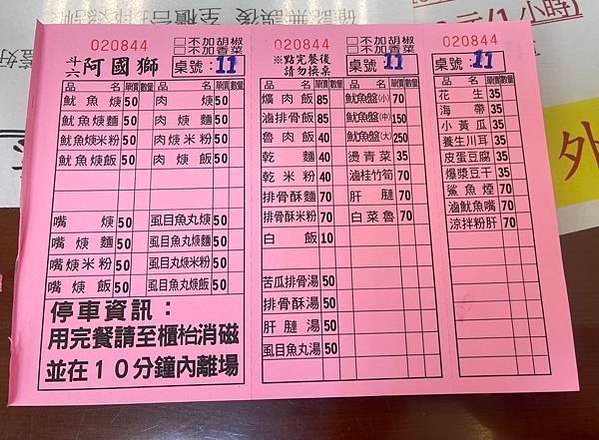 020844
□不加胡椒
□不加香菜
斗六 阿國獅
桌號:11
品 名 單價 數量 品 名 單價 數量
魷魚焿 50 肉焿 50
魷魚焿麵 50 肉焿麵 50
魷魚焿米粉 50 肉焿米粉 50
魷魚焿飯 50 肉焿飯 50
嘴焿 50 虱目魚丸焿 50
嘴焿麵 50 虱目魚丸焿麵 50
嘴焿米粉 50 虱目魚丸焿米粉 50
嘴焿飯 50 虱目魚丸焿飯 50
停車資訊:
用完餐請至櫃枱消磁
並在10分鐘內離場
020844
□不加胡椒
□不加香菜
※點完餐後
請勿換桌
桌號:11
品 名 單價 數量 品 名 單價 數量
爌肉飯 85 魷魚盤(小) 70
滷排骨飯 85 魷魚盤(中) 150
魯肉飯 40 魷魚盤(大) 250
乾麵 40 燙青菜 35
乾米粉 40 滷桂竹筍 70
排骨酥麵 70 肝腱 70
排骨酥米粉 70 白菜魯 70
白飯 10
苦瓜排骨湯 50
排骨湯 50
肝腱湯 50
虱目魚丸湯 50
020844
桌號:11
品 名 單價 數量
花生 35
海帶 35
小黃瓜 35
養生川耳 35
皮蛋豆腐 35
爆漿豆干 35
鯊魚煙 70
滷魷魚嘴 70
涼拌粉肝 70
元/1小時)
外